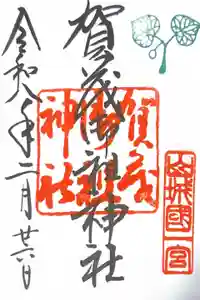 山城國一宮
賀茂御祖神社
賀茂御祖神社
令和八年二月廿六日